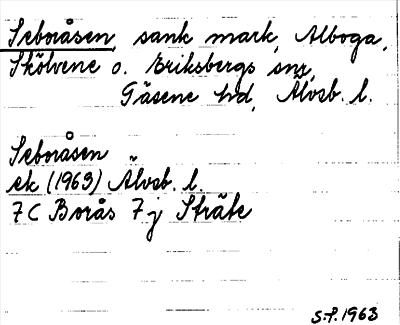 Seboråsen, sank mark, Alboga,
Skölvene o. Eriksbergs snr,
Gäsene hd, Älvsb. l.
Seboråsen
ek (1963) Älvsb. l.
7C Borås 7 j Sträte
S.P. 1963